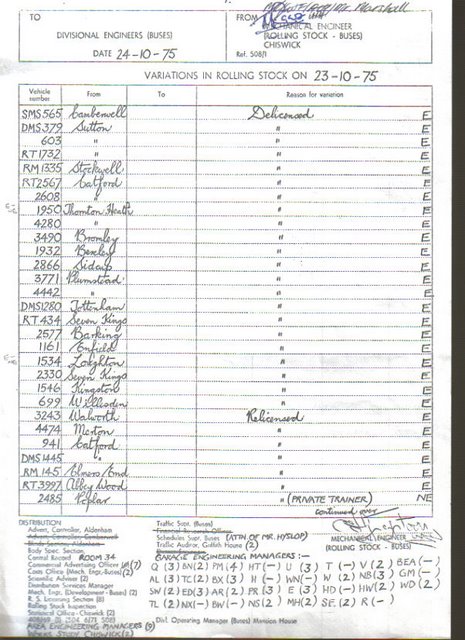 TO
DIVISIONAL ENGINEERS (BUSES)
DATE 24-10-75
FROM
MECHANICAL ENGINEER
(ROLLING STOCK - BUSES)
CHISWICK
Ref. 508/1
VARIATIONS IN ROLLING STOCK ON 23-10-75
Vehicle number From To Reason for variation
SMS 565 Camberwell Delicensed E
DMS 379 Sutton " E
603 " " E
RT 1732 " " E
RM 1335 Stockwell " E
RT 2567 Catford " E
2608 " " E
1950 Thornton Heath " E
4280 " " E
3490 Bromley " E
1932 Bexley " E
2866 Sidcup " E
3771 Plumstead " E
4442 " " E
DMS 1280 Tottenham " E
RT 434 Seven Kings " E
2577 Barking " E
1161 Enfield " E
1534 Loughton " E
2330 Seven Kings " E
1546 Kingston " E
699 Willesden " E
3243 Walworth Relicensed E
4474 Merton " E
941 Catford " E
DMS 1445 " " E
RM 145 Elmers End " E
RT 3997 Abbey Wood " E
2485 Poplar " (PRIVATE TRAINER) NE
continued over
MECHANICAL ENGINEER
(ROLLING STOCK - BUSES)
DISTRIBUTION
Advert. Controller, Aldenham
Body Spec. Section
Control Record ROOM 34
Commercial Advertising Officer (7)
Costs Office (Mech. Engr.-Buses) (2)
Scientific Adviser (2)
Distribution Services Manager
Mech. Engr. (Development - Buses) (2)
R. S. Licensing Section (8)
Rolling Stock Inspection
Statistical Office - Chiswick (2)
AREA ENGINEERING MANAGERS (9)
WORKS STUDY CHISWICK (2)
Traffic Supt. (Buses)
Schedules Supt. (Buses) (ATTN OF MR. HYSLOP)
Traffic Auditor, Griffith House (2)
GARAGE ENGINEERING MANAGERS :-
Q (3) BN (2) PM (4) HT (-) U (3) T (-) V (2) BEA (-)
AL (3) TC (2) BX (3) H (-) WN (-) W (2) NB (3) GM (-)
SW (2) ED (3) AR (2) PR (3) E (3) HD (-) HW (2) WD (2)
TL (2) NX (-) BW (-) NS (2) MH (2) SE (2) R (-)
Divl. Operating Manager (Buses) Mansion House